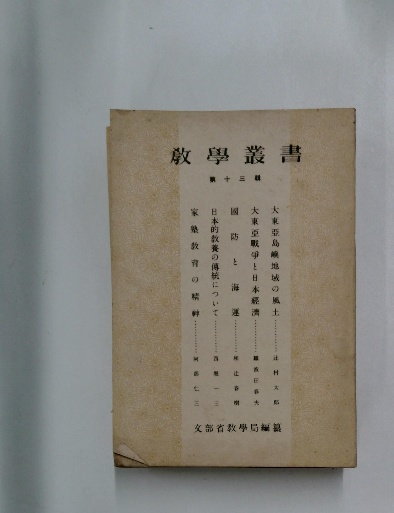 教學叢書
第十三輯
大東亞島嶼地域の風土………辻村太郎
大東亞戰爭と日本經濟………波多野
國防と海運………和辻春樹
日本的教養の傳統について………西一三
家塾教育の精神………阿部仁三
文部省教學局編纂